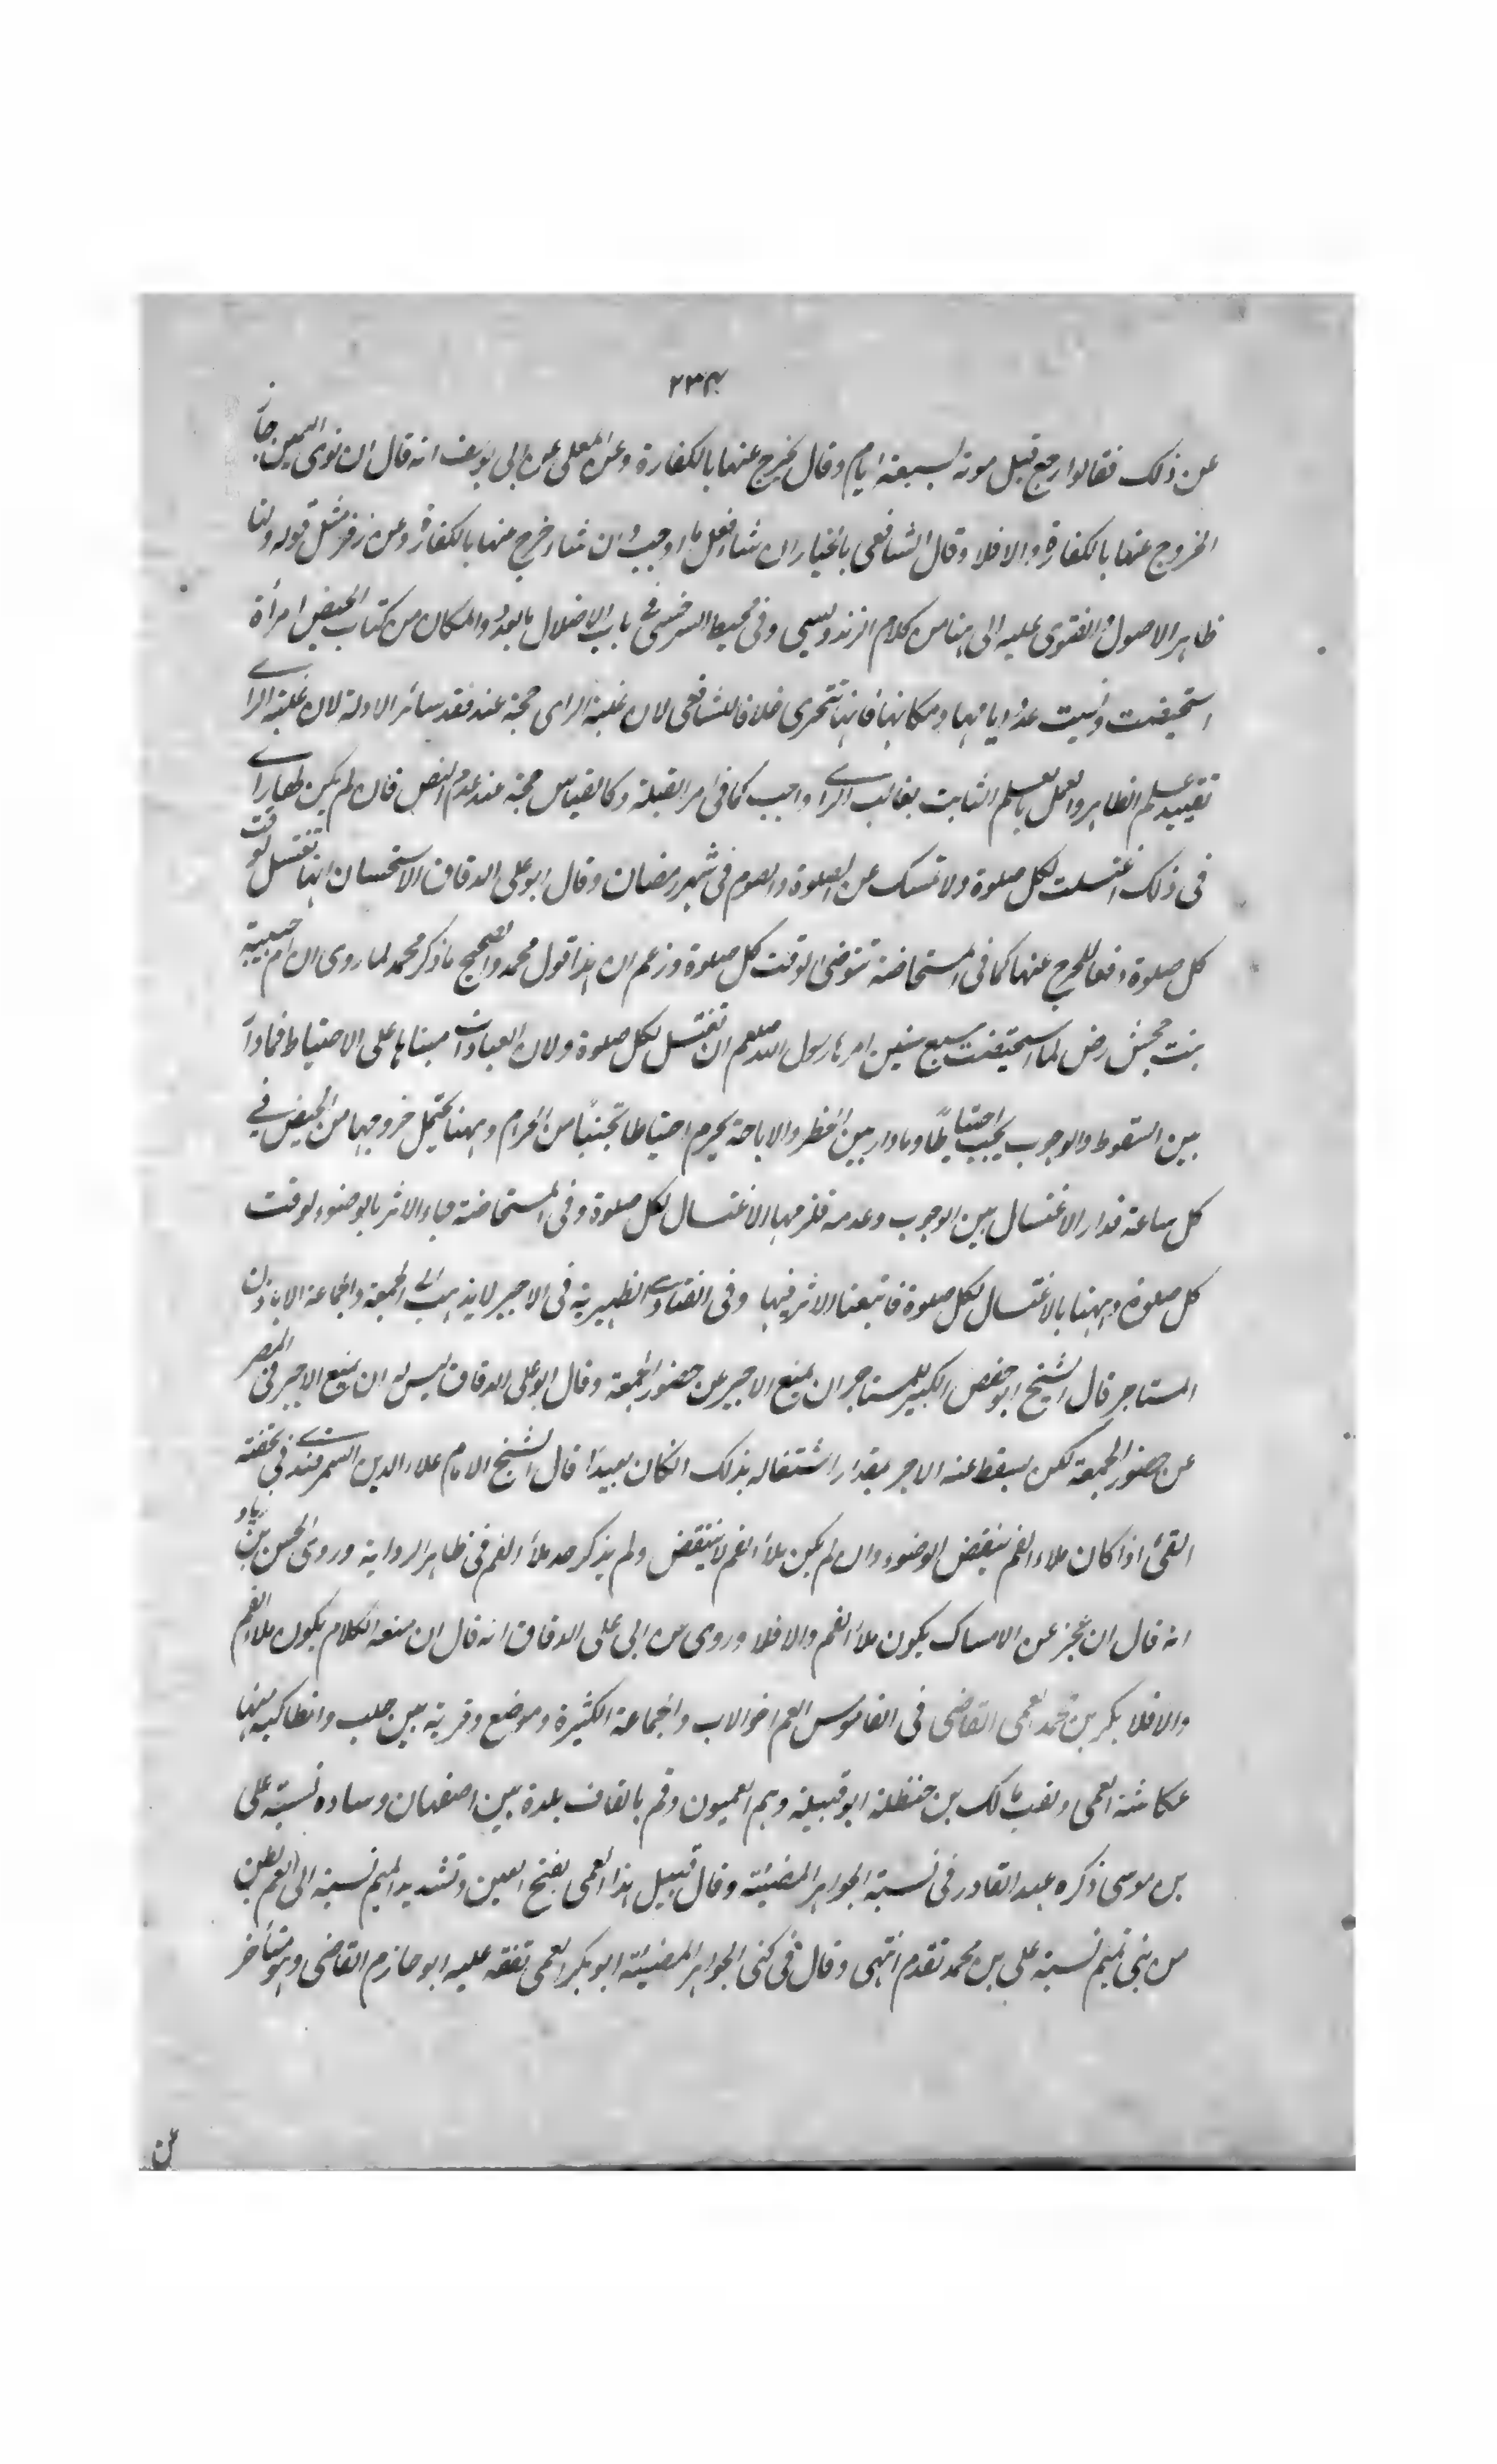 ٢٣٤
عن ذلك فقالوا رجع قبل موته لسبعة ايام وقال يخرج عنها بالكفارة وعن المعلى عن ابى يوسف انه قال ان نوى اليمين جاز
الخروج عنها بالكفارة والا فلا وقال الشافعى بالخيار ان شاء فعل ما اوجب وان شاء خرج منها بالكفارة وعن زفر مثل قوله ولنا
ظاهر الاصول والفتوى عليه الى هنا من كلام الزندويسى وفى محيط السرخسى فى باب الاضلال بالعدد والمكان من كتاب الحيض امرأة
استحيضت ونسيت عدد ايامها ومكانها فانها تتحرى خلافا للشافعى لان غلبة الراى حجة عند فقد سائر الادلة لان غلبة الراى
تفيد علم الظاهر والعمل بالعلم الثابت بغالب الراى واجب كما فى امر القبلة وكالقياس حجة عند عدم النص فان لم يكن لها راى
فى ذلك اغتسلت لكل صلوة ولا تمسك عن الصلوة والصوم فى شهر رمضان وقال ابو على الدقاق الاستحسان انها تغتسل لوقت
كل صلوة دفعا للحرج عنها كما فى المستحاضة تتوضى لوقت كل صلوة وزعم ان هذا قول محمد والصحيح ما ذكر محمد لما روى ان ام حبيبة
بنت جحش رض لما استحيضت سبع سنين امرها رسول الله صلعم ان تغتسل لكل صلوة ولان العبادات مبناها على الاحتياط فما دار
بين السقوط والوجوب يجب احتياطا وما دار بين الحظر والاباحة يحرم احتياطا تجنبا من الحرام وههنا يحتمل خروجها من الحيض فى
كل ساعة فدار الاغتسال بين الوجوب وعدمه فلزمها الاغتسال لكل صلوة وفى المستحاضة جاء الاثر بالوضوء لوقت
كل صلوة وههنا بالاغتسال لكل صلوة فاتبعنا الاثر فيها وفى الفتاوى الظهيرية فى الاجير لا يذهب الى الجمعة والجماعة الا باذن
المستاجر قال الشيخ ابو حفص الكبير للمستاجر ان يمنع الاجير عن حضور الجمعة وقال ابو على الدقاق ليس له ان يمنع الاجير فى المصر
عن حضور الجمعة لكن يسقط عنه الاجر بقدر اشتغاله بذلك انكان بعيدا قال الشيخ الامام علاء الدين السمرقندى فى تحفته
القئ اذا كان ملاء الفم ينقض الوضوء وان لم يكن ملأ الفم لا ينقض ولم يذكر حد ملأ الفم فى ظاهر الرواية وروى الحسن بن زياد
انه قال ان عجز عن الامساك يكون ملأ الفم والا فلا وروى عن ابى على الدقاق انه قال ان منعه الكلام يكون ملاء الفم
والا فلا بكر بن محمد العمى القاضى فى القاموس العم اخو الاب والجماعة الكثيرة وموضع وقرية بين حلب وانطاكية منها
عكاشة العمى ولقب مالك بن حنظلة ابو قبيلة وهم العميون وقم بالقاف بلدة بين اصفهان وساده نسبة على
بن موسى ذكره عبد القادر فى نسبة الجواهر المضيئة وقال قبيل هذا العمى بفتح العين وتشديد الميم نسبة الى العم بطن
من بنى تميم نسبة على بن محمد تقدم انتهى وقال فى كنى الجواهر المضيئة ابو بكر العمى تفقه عليه ابو حازم القاضى وهو متأخر
عن